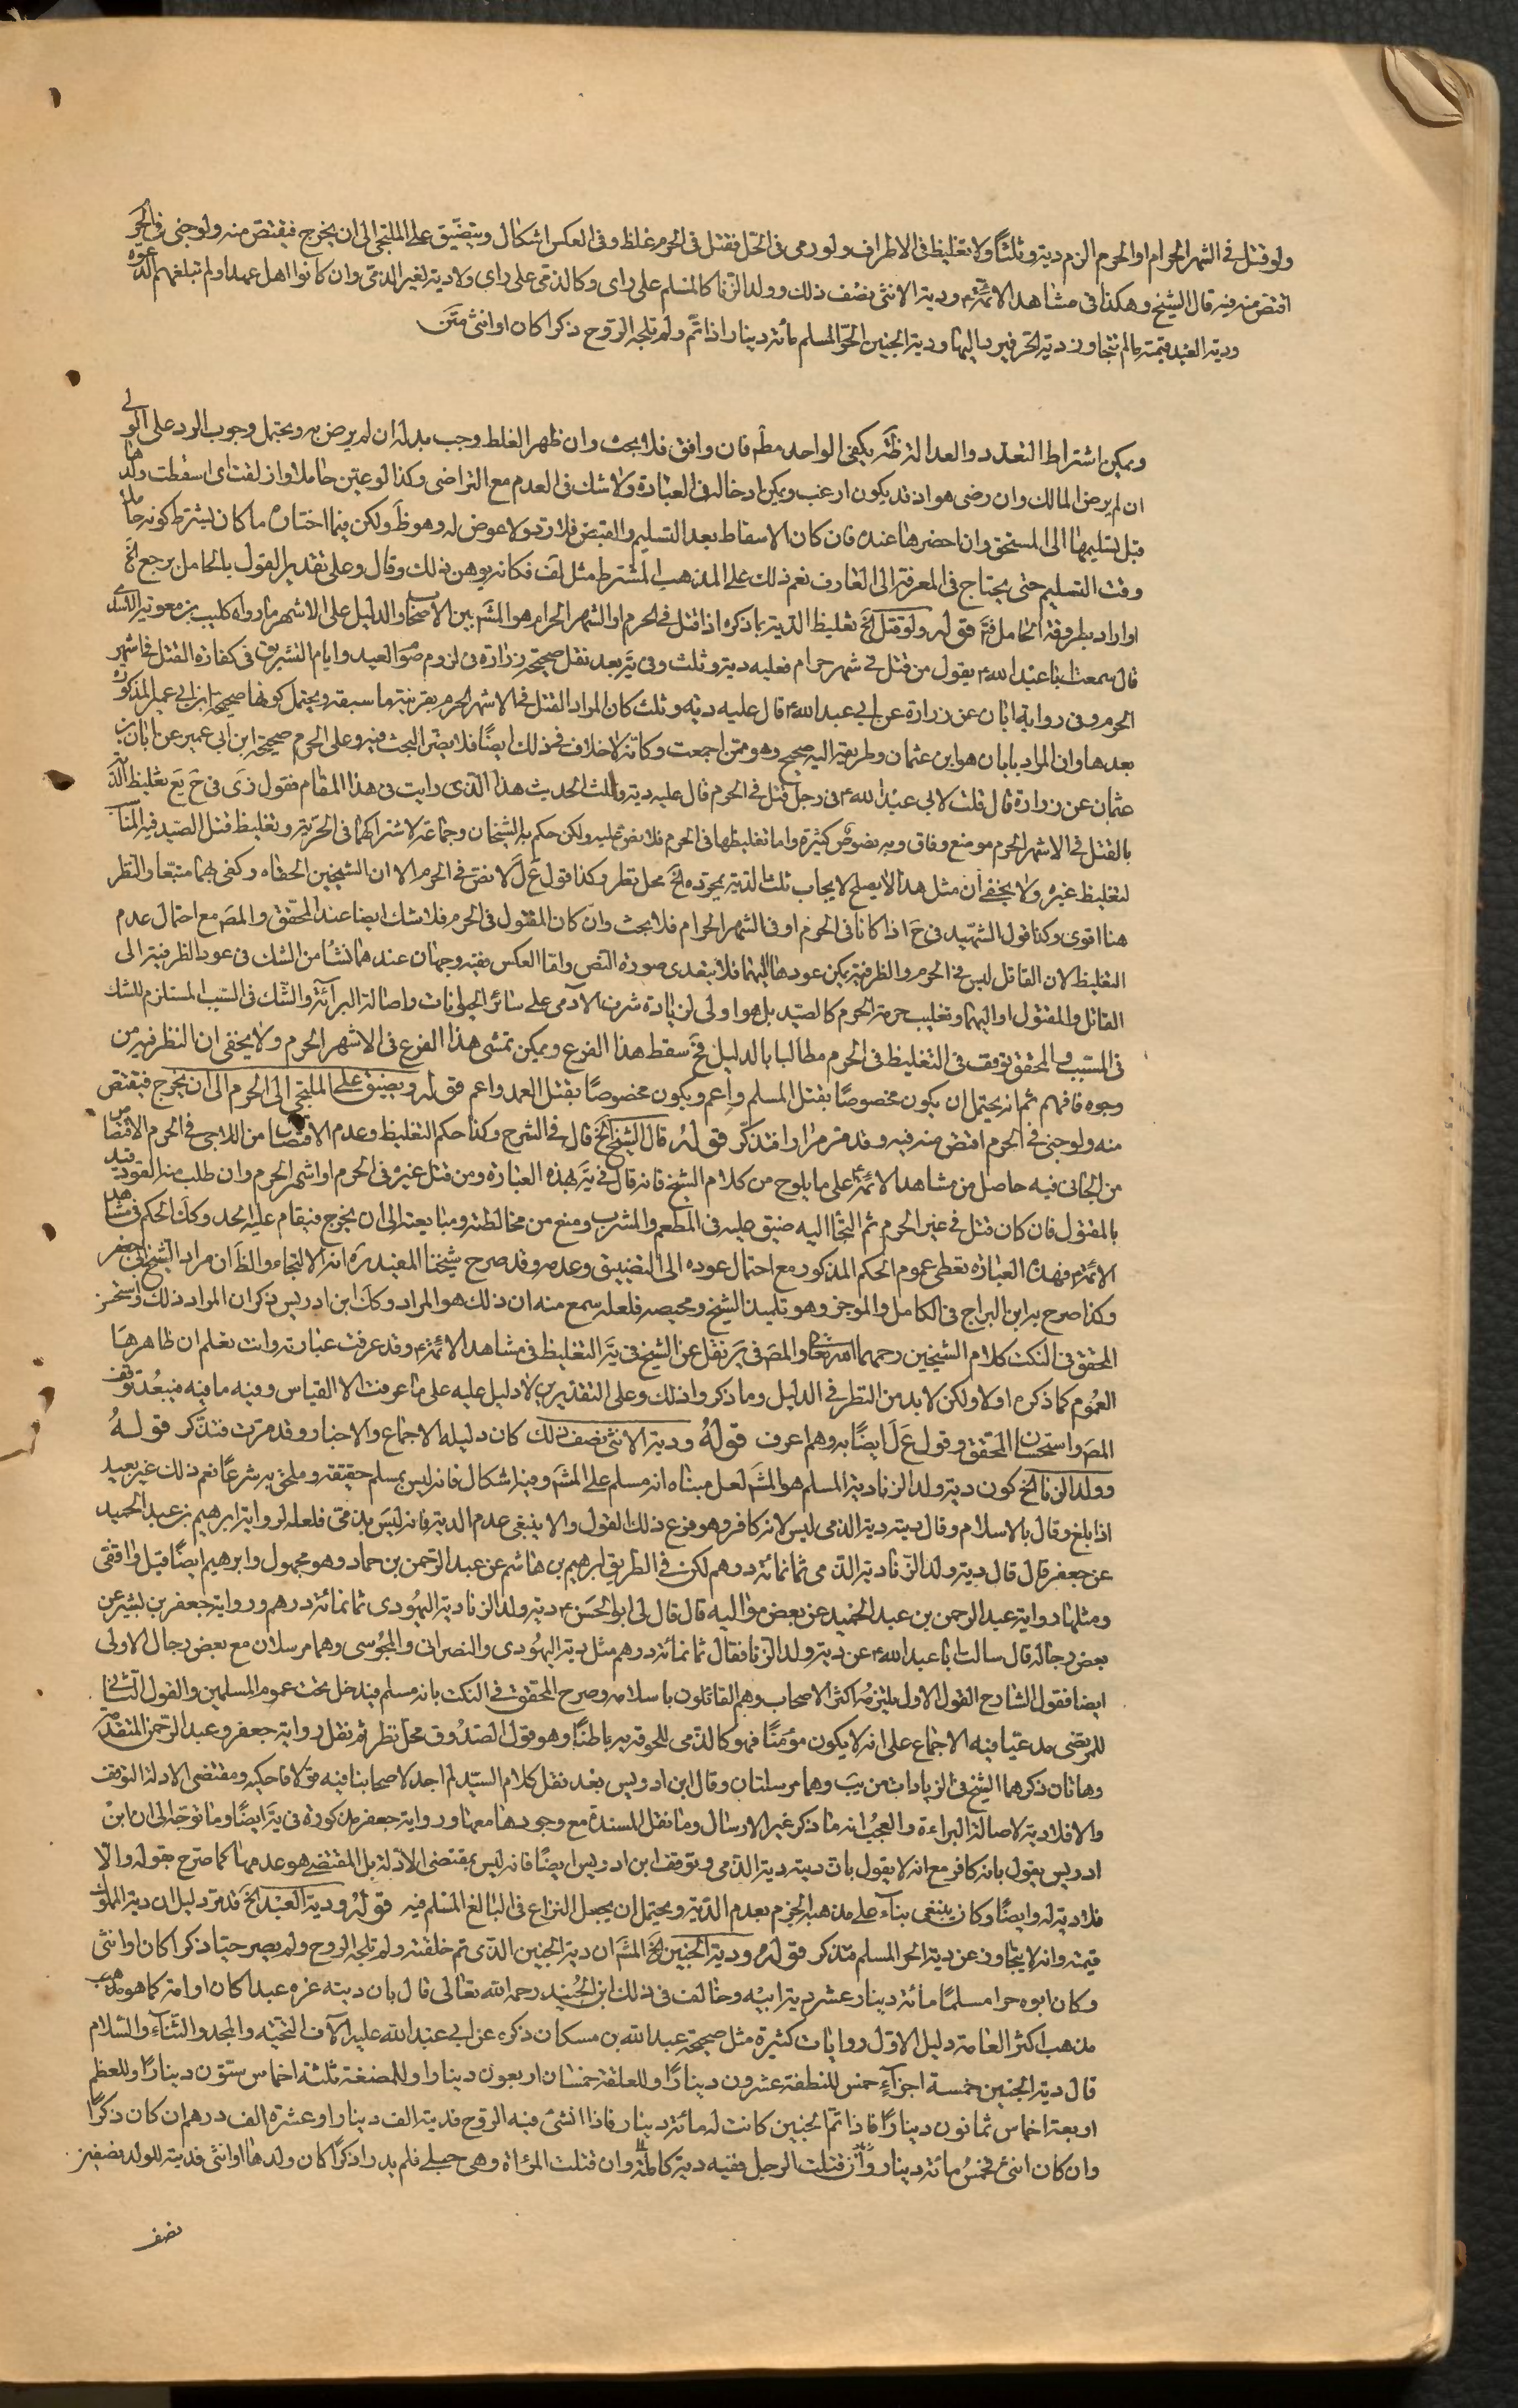 ولو قتل فى الشهر الحرام او الحرم الزم دية و ثلثاً ولا تغليظ فى الاطراف ولو رمى فى الحل فقتل فى الحرم غلظ وفى العكس اشكال ويتضيق على الملتجى الى ان يخرج فيقتص منه ولو جنى فى الحرم
اقتص منه فيه قال الشيخ وهكذا فى مشاهد الائمة ع ودية الانثى نصف ذلك وولد الزنا كالمسلم على راى وكالذمى على راى ولا دية لغير الذمى وان كانوا اهل عهد او لم تبلغهم الدعوة
ودية العبد قيمته ما لم تتجاوز دية الحر فيرد اليها ودية الجنين الحر المسلم مائة دينار اذا تم ولم تلجه الروح ذكرا كان او انثى متن
ويمكن اشتراط التعدد والعدالة ظ يكفى الواحد مطم فان وافق فلا بحث وان ظهر الغلط وجب بدله ان لم يرض به ويحتمل وجوب الرد على الولى
ان لم يرض المالك وان رضى هو اذ قد يكون ارغب ويمكن ادخاله فى العبارة ولا شك فى العدم مع التراضى وكذا لو عين حاملا وازلفت اى اسقطت ولدها
قبل تسليمها الى المستحق وان احضرها عنده فان كان الاسقاط بعد التسليم والقبض فلا رد ولا عوض له وهو ظ ولكن فيما اختاره ما كان يشترط كونه حاملا
وقت التسليم حتى يحتاج فى المعرفة الى العارف نعم ذلك على المذهب المشترط مثل لف فكانه يوهن ذلك وقال وعلى تقدير القول بالحامل يرجع الخ
او اراد بطروقة الحامل فتم قوله ولو قتل الخ تغليظ الدية بما ذكره اذا قتل فى الحرم او الشهر الحرام هو المش بين الاصحاب والدليل على الاشهر ما رواه كليب بن معوية الاسدى
قال سمعت ابا عبد الله ع يقول من قتل فى شهر حرام فعليه دية وثلث وفى يه بعد نقل صحيحة زرارة فى لزوم صوم العيد وايام التشريق فى كفارة القتل فى اشهر
الحرم وفى رواية ابان عن زرارة عن ابى عبد الله ع قال عليه دية وثلث كان المراد القتل فى الاشهر الحرم بقرينة ما سبقه ويحتمل كونها صحيحة ابن ابى عمير المذكورة
بعدها وان المراد بابان هو ابن عثمان وطريقه اليه صحيح وهو ممن اجمعت وكانه لا خلاف فى ذلك ايضاً فلا يضر البحث فيه وعلى الحرم صحيحة ابن ابى عمير عن ابان بن
عثمان عن زرارة قال قلت لابى عبد الله ع فى رجل قتل فى الحرم قال عليه دية وثلث الحديث هذا الذى رايت فى هذا المقام فقول زى فى ح يع تغليظ الدية
بالقتل فى الاشهر الحرم موضع وفاق وبه نصوص كثيرة واما تغليظها فى الحرم فلا نص عليه ولكن حكم به الشيخان وجماعة لاشتراكهما فى الحرمة وتغليظ قتل الصيد فيه المناسب
لتغليظ غيره ولا يخفى ان مثل هذا لا يصلح لايجاب ثلث الدية بمجرده الخ محل نظر وكذا قول ع ل لا نص فى الحرم الا ان الشيخين الحقاه وكفى بهما متبعا والنظر
هنا اقوى وكذا قول الشهيد فى ح اذا كانا فى الحرم او فى الشهر الحرام فلا بحث وان كان المقتول فى الحرم فلا شك ايضا عند المحقق والمص مع احتمال عدم
التغليظ لان القاتل ليس فى الحرم والظرفية يمكن عودها اليهما فلا يتعدى صورة النص واما العكس ففيه وجهان عندهما نشأ من الشك فى عود الظرفية الى
القاتل والمقتول او اليهما وتغليب حرمة الحرم كالصيد بل هو اولى لزيادة شرف الآدمى على سائر الحيوانات واصالة البرائة والشك فى السبب المستلزم للشك
فى المسبب والمحقق توقف فى التغليظ فى الحرم مطالبا بالدليل فح سقط هذا الفرع ويمكن تمشى هذا الفرع فى الاشهر الحرم ولا يخفى ان النظر فيه من
وجوه فافهم ثم انه يحتمل ان يكون مخصوصا بقتل المسلم واعم ويكون مخصوصا بقتل العمد واعم قوله ويضيق على الملتجى الى الحرم الى ان يخرج فيقتص
منه ولو جنى فى الحرم اقتص منه فيه وقد مر مرارا فتذكر قوله قال الشيخ الخ قال فى الشرح وكذا حكم التغليظ وعدم الاقتصاص من اللاجى فى الحرم الاقتصاص
من الجانى فيه حاصل من مشاهد الائمة ع على ما يلوح من كلام الشيخ فانه قال فى يه بهذه العبارة ومن قتل غيره فى الحرم او اشهر الحرم وان طلب منه القود فيه
بالمقتول فان كان قتل فى غير الحرم ثم التجا اليه ضيق عليه فى المطعم والمشرب ومنع من مخالطته ومبايعته الى ان يخرج فيقام عليه الحد وكك الحكم فى مشاهد
الائمة ع فهذه العبارة تعطى عموم الحكم المذكور مع احتمال عوده الى التضييق وعدمه وقد صرح شيخنا المفيد ره انه الالتجاء والظ ان مراد الشيخ ابى جعفر
وكذا صرح به ابن البراج فى الكامل والموجز وهو تلميذ الشيخ ومحيصه فلعله سمع منه ان ذلك هو المراد وكك ابن ادريس ذكر ان المراد ذلك واستحسن
المحقق فى النكت كلام الشيخين رحمهما الله تعالى والمص فى ير نقل عن الشيخ فى يه التغليظ فى مشاهد الائمة ع وقد عرفت عبارته وانت تعلم ان ظاهرها
العموم كما ذكره اولا ولكن لا بد من النظر فى الدليل وما ذكروا ذلك وعلى التقديرين لا دليل عليه على ما عرفت الا القياس وفيه ما فيه فيبعد توقف
المص واستحسان المحقق وقول ع ل ايضاً به وهم اعرف قوله ودية الانثى نصف ذلك كان دليله الاجماع والاخبار وقد مرت فتذكر قوله
وولد الزنا الخ كون دية ولد الزنا دية المسلم هو المش لعل مبناه انه مسلم على المش وفيه اشكال فانه ليس بمسلم حقيقة وملحق به شرعاً نعم ذلك غير بعيد
اذا بلغ وقال بالاسلام وقال ديته دية الذمى ليس لانه كافر وهو فرع ذلك القول والا ينبغى عدم الدية فانه ليس بذمى فلعله لرواية ابرهيم بن عبد الحميد
عن جعفر قال قال دية ولد الزنا دية الذمى ثمانمائة درهم لكن فى الطريق ابرهيم بن هاشم عن عبد الرحمن بن حماد وهو مجهول وابرهيم ايضاً قيل واقفى
ومثلها رواية عبد الرحمن بن عبد الحميد عن بعض مواليه قال قال لى ابو الحسن ع دية ولد الزنا دية اليهودى ثمانمائة درهم ورواية جعفر بن بشير عن
بعض رجاله قال سالت ابا عبد الله ع عن دية ولد الزنا فقال ثمانمائة درهم مثل دية اليهودى والنصرانى والمجوسى وهما مرسلان مع بعض رجال الاولى
ايضا فقول الشارح القول الاول يلتزمه اكثر الاصحاب وهم القائلون باسلامه وصرح المحقق فى النكت بانه مسلم فيدخل تحت عموم المسلمين والقول الثانى
للمرتضى مدعيا فيه الاجماع على انه لا يكون مؤمنًا فهو كالذمى للحوقه به باطناً وهو قول الصدوق محل نظر ثم نقل رواية جعفر وعبد الرحمن المتقدمتين
وهاتان ذكرهما الشيخ فى الزيادات من يب وهما مرسلتان وقال ابن ادريس بعد نقل كلام السيد لم اجد لاصحابنا فيه قولا فاحكيه ومقتضى الادلة التوقف
والا فلا دية لاصالة البراءة والعجب انه ما ذكر غير الارسال وما نقل المسندة مع وجودها معهما ورواية جعفر مذكورة فى يه ايضًا وما توجه الى ان ابن
ادريس يقول بانه كافر مع انه لا يقول بان ديته دية الذمى وتوقف ابن ادريس ايضًا فانه ليس بمقتضى الادلة بل المقتضى هو عدمها كما صرح بقوله والا
فلا دية له وايضًا وكان ينبغى بناء على مذهبه الجزم بعدم الدية ويحتمل ان يجعل النزاع فى البالغ المسلم فيه قوله ودية العبد الخ قد مر دليل ان دية المملوك
قيمته وانه لا يتجاوز عن دية الحر المسلم فتذكر قوله ودية الجنين الخ المش ان دية الجنين الذى تم خلقته ولم تلجه الروح ولم يصر حيا ذكرا كان او انثى
وكان ابوه حرا مسلمًا مائة دينار عشر دية ابيه وخالف فى ذلك ابن الجنيد رحمه الله تعالى قال بان ديته غرة عبدا كان او امة كما هو مذهب
مذهب اكثر العامة دليل الاول روايات كثيرة مثل صحيحة عبد الله بن مسكان ذكره عن ابى عبد الله عليه الآف التحية والمجد والثناء والسلام
قال دية الجنين خمسة اجزاء خمس للنطفة عشرون دينارًا وللعلقة خمسان اربعون دينارا وللمضغة ثلثة اخماس ستون دينارًا وللعظم
اربعة اخماس ثمانون دينارًا فاذا تم الجنين كانت له مائة دينار فاذا انشئ فيه الروح فديته الف دينار او عشرة الف درهم ان كان ذكرًا
وان كان انثى فخمس مائة دينار وان قتلت الرجل ففيه دية كاملة وان قتلت المرأة وهى حبلى فلم يدر اذكرًا كان ولدها او انثى فدية للولد نصفين
نصف